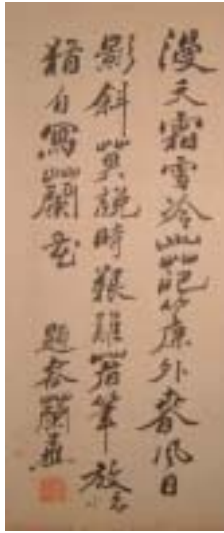 漫天霜雪冷笆簾外春風日
影斜莫說時艱難著筆放
猶自寫蘭花 題蘭